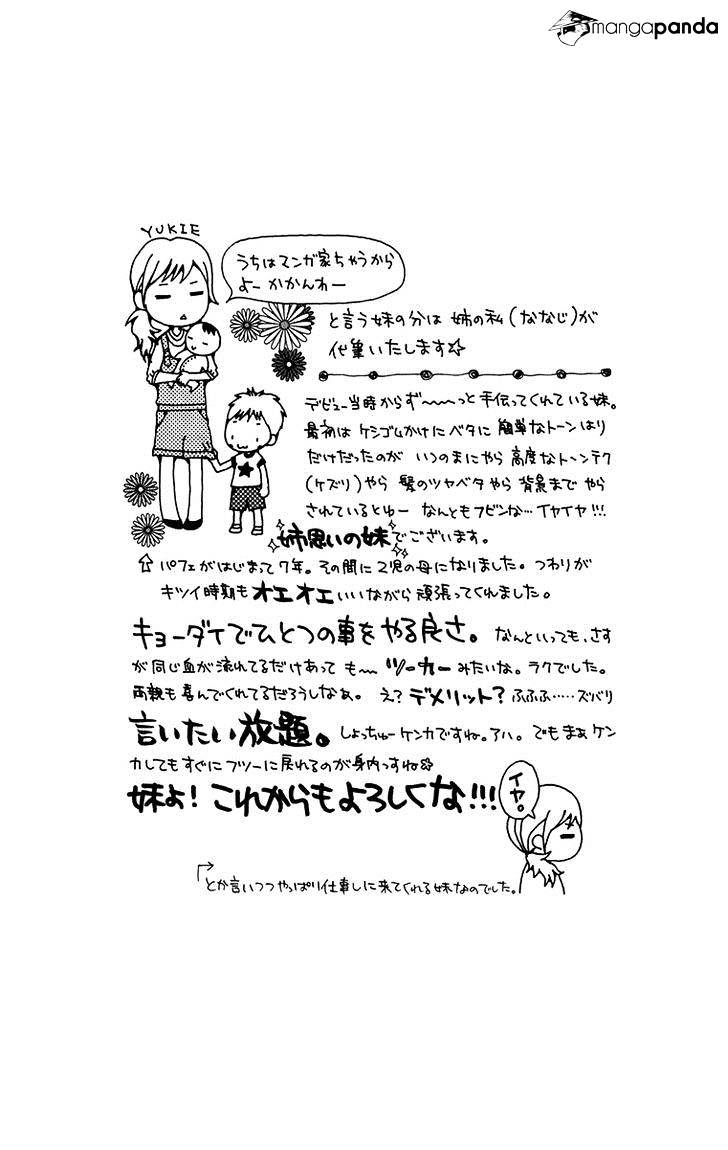 mangapanda
YUKIE
うちはマンガ家ちゃうから
よーかかんわー
と言う妹の分は 姉の私(ななじ)が
代筆いたします☆
デビュー当時からず〜〜〜っと手伝ってくれている妹。
最初は ケシゴムかけにベタに 簡単なトーンはり
だけだったのが いつのまにやら 高度なトーンテク
(ケズリ)やら 髪のツヤベタやら 背景まで やら
されているとゆー なんともフビンな…イヤイヤ!!!
姉思いの妹でございます。
⇧ パフェがはじまって7年。その間に2児の母になりました。つわりが
キツイ時期もオエオエいいながら頑張ってくれました。
キョーダイでひとつの事をやる良さ。なんといっても、さす
が同じ血が流れてるだけあって も〜 ツーカーみたいな。ラクでした。
両親も喜んでくれてるだろうしなぁ。 え?デメリット?ふふふ……ズバリ
言いたい放題。しょっちゅーケンカですね。アハ。でもまぁケン
カしてもすぐにフツーに戻れるのが身内っすね☆
妹よ!これからもよろしくな!!!
イヤ。
とか言いつつやっぱり仕事しに来てくれる妹なのでした。